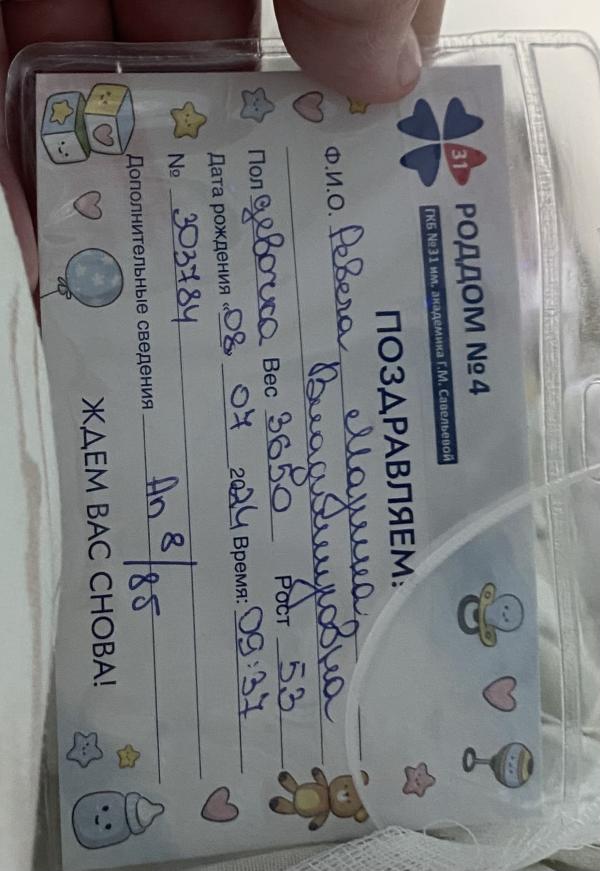 31
РОДДОМ № 4
ГКБ №31 им. академика Г.М. Савельевой
ПОЗДРАВЛЯЕМ!
Марина
Ф.И.О. Ревега Владимировна
Пол девочка Вес 3650 Рост 53
Дата рождения «08» 07 2024 Время: 09:37
№ 303784
Дополнительные сведения Ап 8/85
ЖДЕМ ВАС СНОВА!